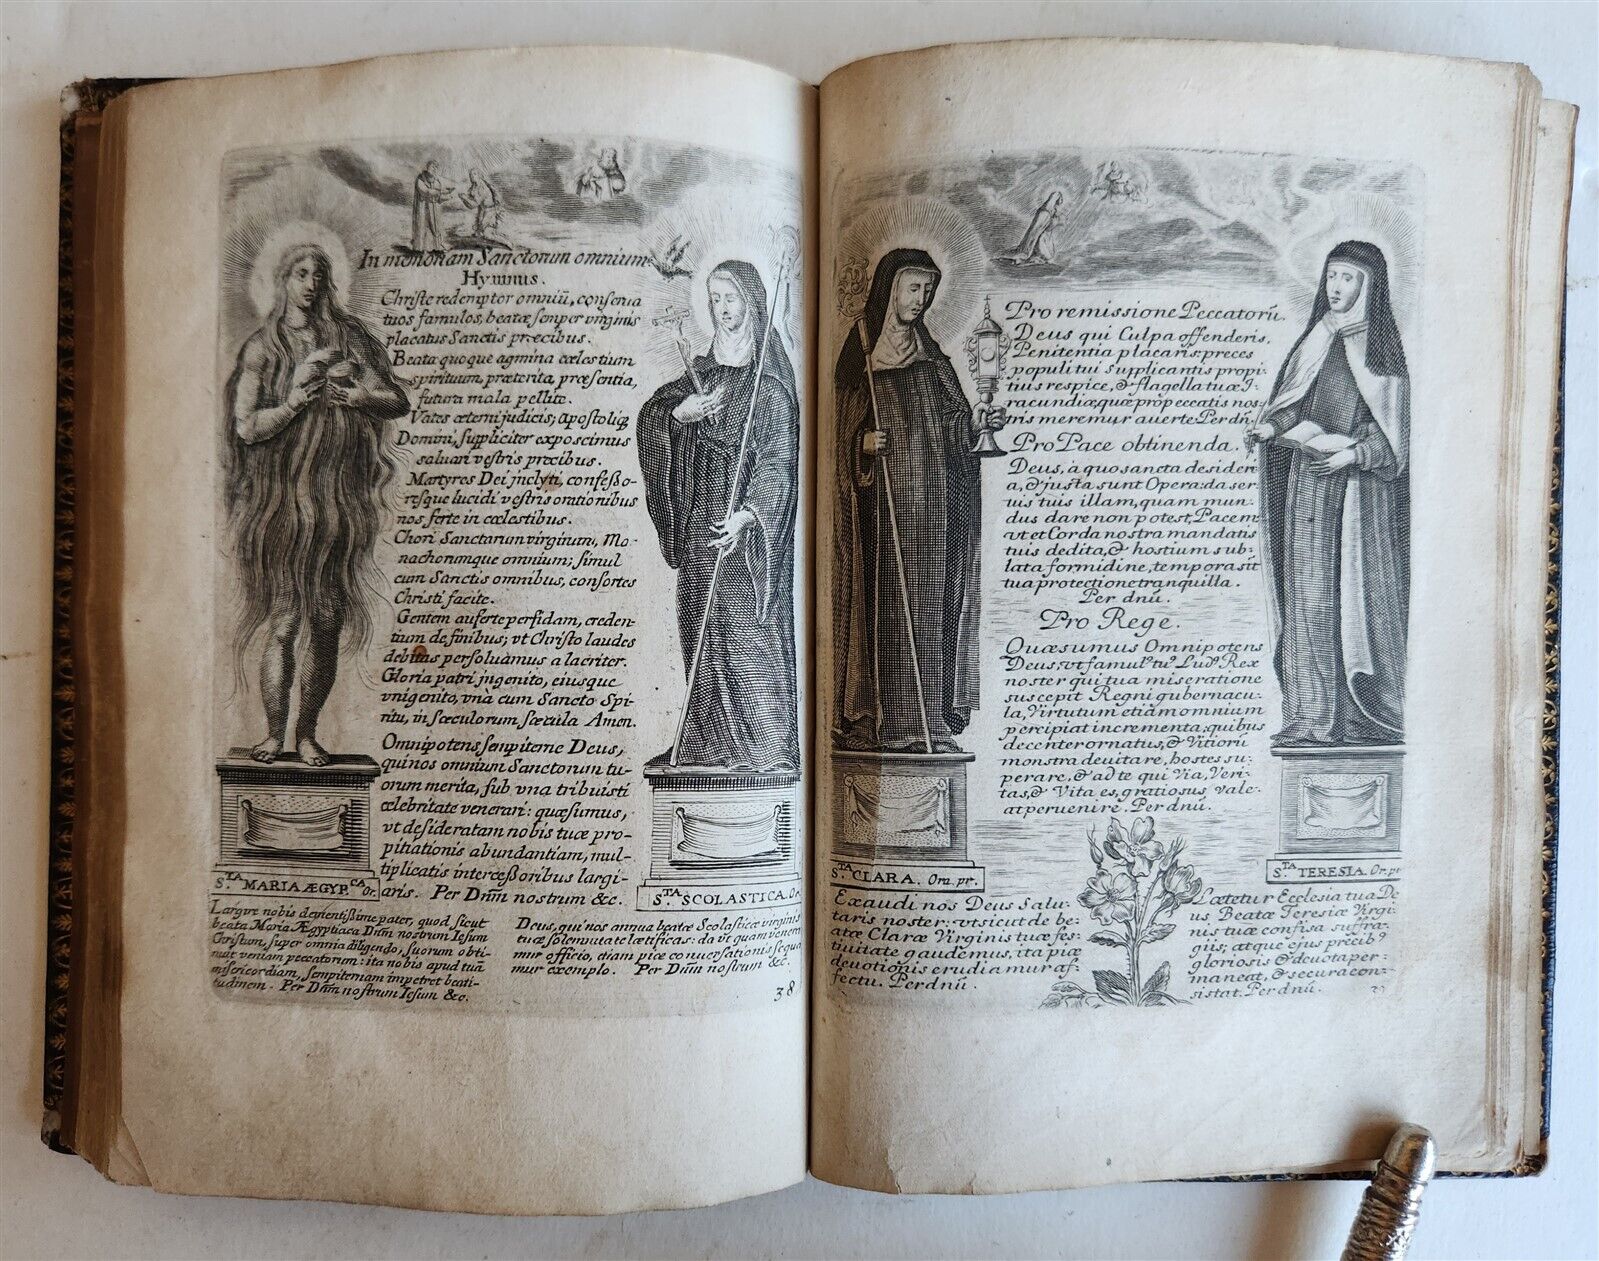 In memoriam Sanctorum omnium
Hymnus.
Christe redemptor omniũ, conserua
tuos famulos, beatæ semper virginis
placatus Sanctis præcibus.
Beata quoque agmina cælestium
spirituum, præterita, præsentia,
futura mala pellite.
Vates æterni judicis, Apostoliq;
Domini, suppliciter exposcimus
saluari vestris precibus.
Martyres Dei jnclyti, confeßo-
resque lucidi vestris orationibus
nos ferte in cælestibus.
Chori Sanctarum virginum, Mo-
nachorumque omnium; simul
cum Sanctis omnibus, consortes
Christi facite.
Gentem auferte perfidam, creden-
tium de finibus; vt Christo laudes
debitas persoluamus alacriter.
Gloria patri jngenito, eiusque
vnigenito, vnà cum Sancto Spi-
ritu, in sæculorum sæcula Amen.
Omnipotens sempiterne Deus,
qui nos omnium Sanctorum tu-
orum merita, sub vna tribuisti
celebritate venerari: quæsumus,
vt desideratam nobis tuæ pro-
pitiationis abundantiam, mul-
tiplicatis interceßoribus largi-
aris. Per Dñm nostrum &c.
S.TA MARIA ÆGYP.CA Or.
S.TA SCOLASTICA. Or.
Largire nobis clementißime pater, quod sicut
beata Maria Ægyptiaca Dñm nostrum Iesum
Christum, super omnia diligendo, suorum obti-
nuit veniam peccatorum: ita nobis apud tuã
misericordiam, sempiternam impetret beati-
tudinem. Per Dñm nostrum Iesum &c.
Deus, qui nos annua beatæ Scolasticæ virginis
tuæ solemnitate lætificas: da vt quam venera
mur officio, etiam piæ conuersationis sequa
mur exemplo. Per Dñm nostrum &c.
38
Pro remissione Peccatorũ.
Deus qui Culpa offenderis,
Penitentia placaris: preces
populi tui supplicantis propi-
tius respice, & flagella tuæ J-
racundiæ, quæ pro peccatis nos-
tris meremur auerte Per dñ.
Pro Pace obtinenda.
Deus, à quo sancta desideri
a, & justa sunt Opera: da ser-
uis tuis illam, quam mun-
dus dare non potest, Pacem
vt et Corda nostra mandatis
tuis dedita, & hostium sub-
lata formidine, tempora sit
tua protectione tranquilla.
Per dnũ.
Pro Rege.
Quæsumus Omnipotens
Deus, vt famul.⁹ tu.⁹ Lud.⁹ Rex
noster qui tua miseratione
suscepit Regni gubernacu-
la, Virtutum etiã omnium
percipiat incrementa, quibus
decenter ornatus, & Vitiorũ
monstra deuitare, hostes su-
perare, & ad te qui Via, Veri-
tas, & Vita es, gratiosus vale-
at peruenire. Per dnũ.
S.TA CLARA. Ora. pr.
S.TA TERESIA. Or. pr
Exaudi nos Deus Salu-
taris noster: vt sicut de be-
atæ Claræ Virginis tuæ fes-
tiuitate gaudemus, ita piæ
deuotionis erudiamur af-
fectu. Per dnũ.
Lætetur Ecclesia tua De
us Beatæ Teresiæ Virgi-
nis tuæ confisa suffra-
giis; atque ejus precib⁹
gloriosis & deuota per-
maneat, & secura con-
sistat. Per dnũ.